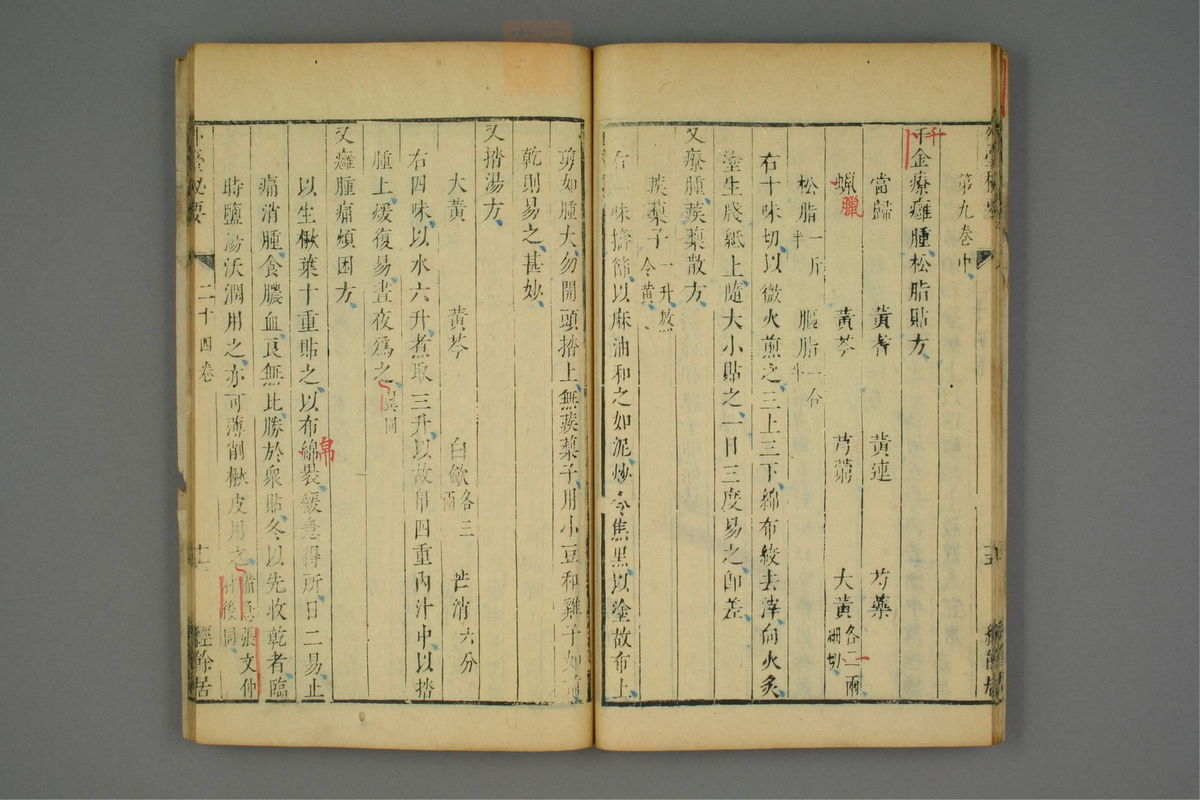 第九卷中
千金療癰腫松脂貼方
當歸 黃耆 黃連 芍藥
蠟 臘 黃芩 芎藭 大黃各二兩細切
松脂一斤半 膃脂一合半
右十味切以微火煎之三上三下綿布絞去滓向火炙
塗生牋紙上隨大小貼之一日三度易之卽差
又療腫蒺蔾散方
蒺蔾子一升熬令黃
右一味擣篩以麻油和之如泥炒令焦黑以塗故布上
剪如腫大勿開頭㨉上無蒺蔾子用小豆和雞子如前
乾則易之甚妙
又㨉湯方
大黃 黃芩 白歛各三兩 芒消六分
右四味以水六升煮取三升以故帛四重內汁中以㨉
腫上緩復易晝夜爲之吳同
又癰腫痛煩困方
以生楸葉十重貼之以布綿裝緩急得所日二易止
帛
痛消腫食膿血良無比勝於衆貼冬以先收乾者臨
時鹽湯沃潤用之亦可薄削楸皮用之備急張文仲肘後同
外臺秘要 二十四卷 十二 經餘居